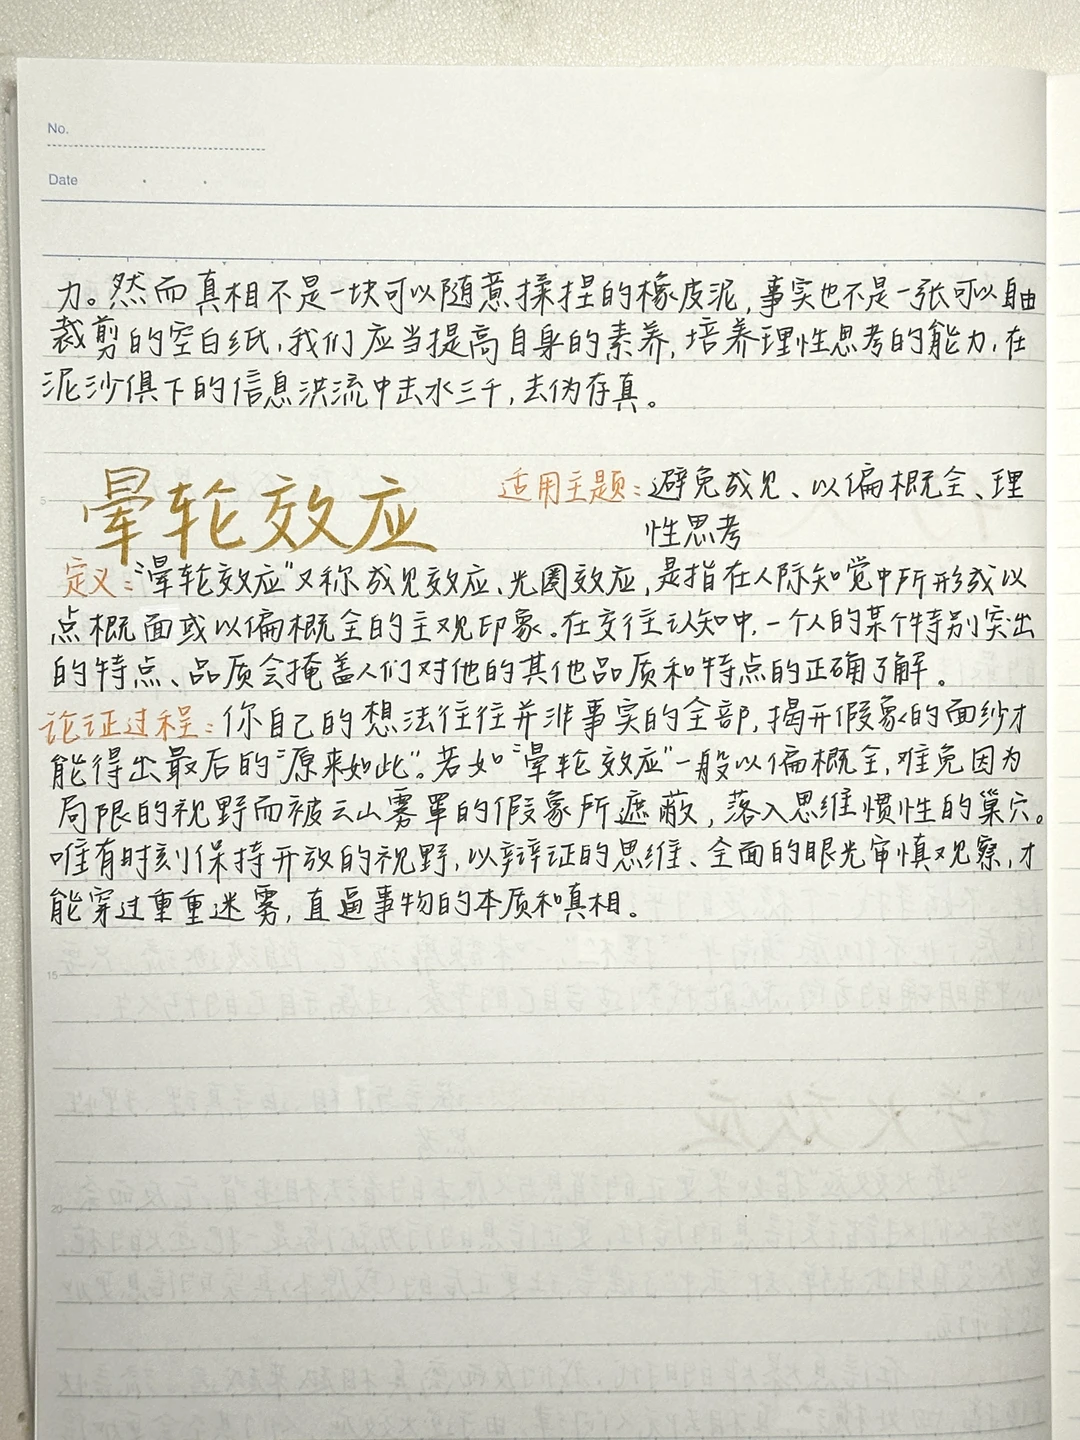 No.
Date
力。然而真相不是一块可以随意揉捏的橡皮泥，事实也不是一张可以自由
裁剪的空白纸，我们应当提高自身的素养，培养理性思考的能力，在
泥沙俱下的信息洪流中击水三千，去伪存真。
晕轮效应
适用主题：避免成见、以偏概全、理
性思考
定义：“晕轮效应”又称成见效应、光圈效应，是指在人际知觉中所形成以
点概面或以偏概全的主观印象。在交往认知中，一个人的某个特别突出
的特点、品质会掩盖人们对他的其他品质和特点的正确了解。
论证过程：你自己的想法往往并非事实的全部，揭开假象的面纱才
能得出最后的“原来如此”。若如“晕轮效应”一般以偏概全，难免因为
局限的视野而被云山雾罩的假象所遮蔽，落入思维惯性的巢穴。
唯有时刻保持开放的视野，以辩证的思维、全面的眼光审慎观察，才
能穿过重重迷雾，直逼事物的本质和真相。
5
15
20